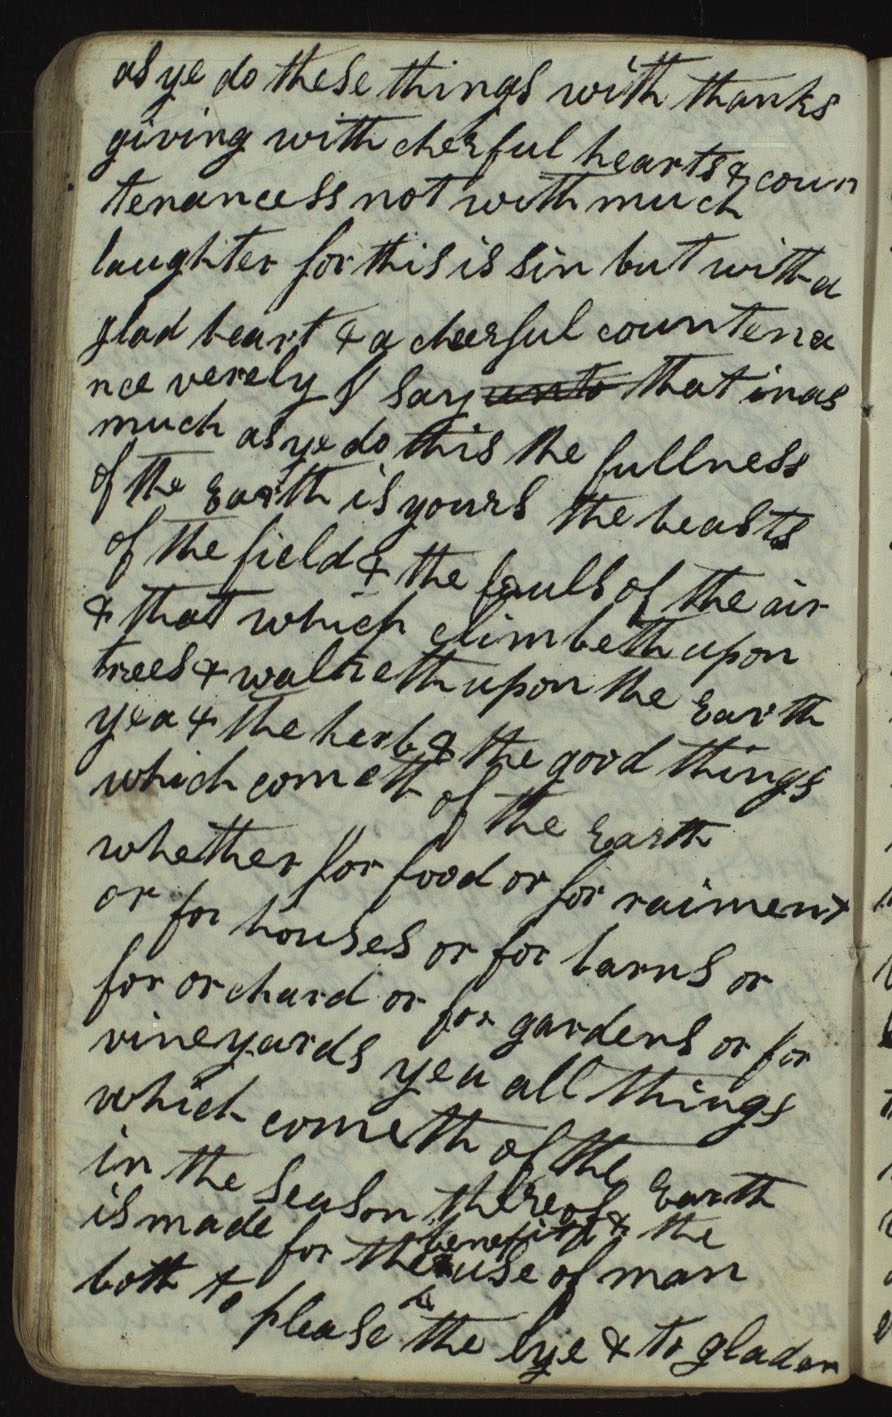 as ye do these things with thanks
giving with cheerful hearts & coun
tenancess not with much
laughter for this is sin but with a
glad heart & a cheerful countena
nce verely I say unto that inas
much as ye do this the fullness
of the Earth is yours the beasts
of the field & the fouls of the air
& that which climbeth upon
trees & walketh upon the Earth
yea & the herb & the good things
which cometh of the Earth
whether for food or for raiment
or for houses or for barns or
for orchard or for gardens or for
vineyards yea all things
which cometh of the Earth
in the season thereof
is made for the benefit & the
use of man
both to please the eye & to gladen